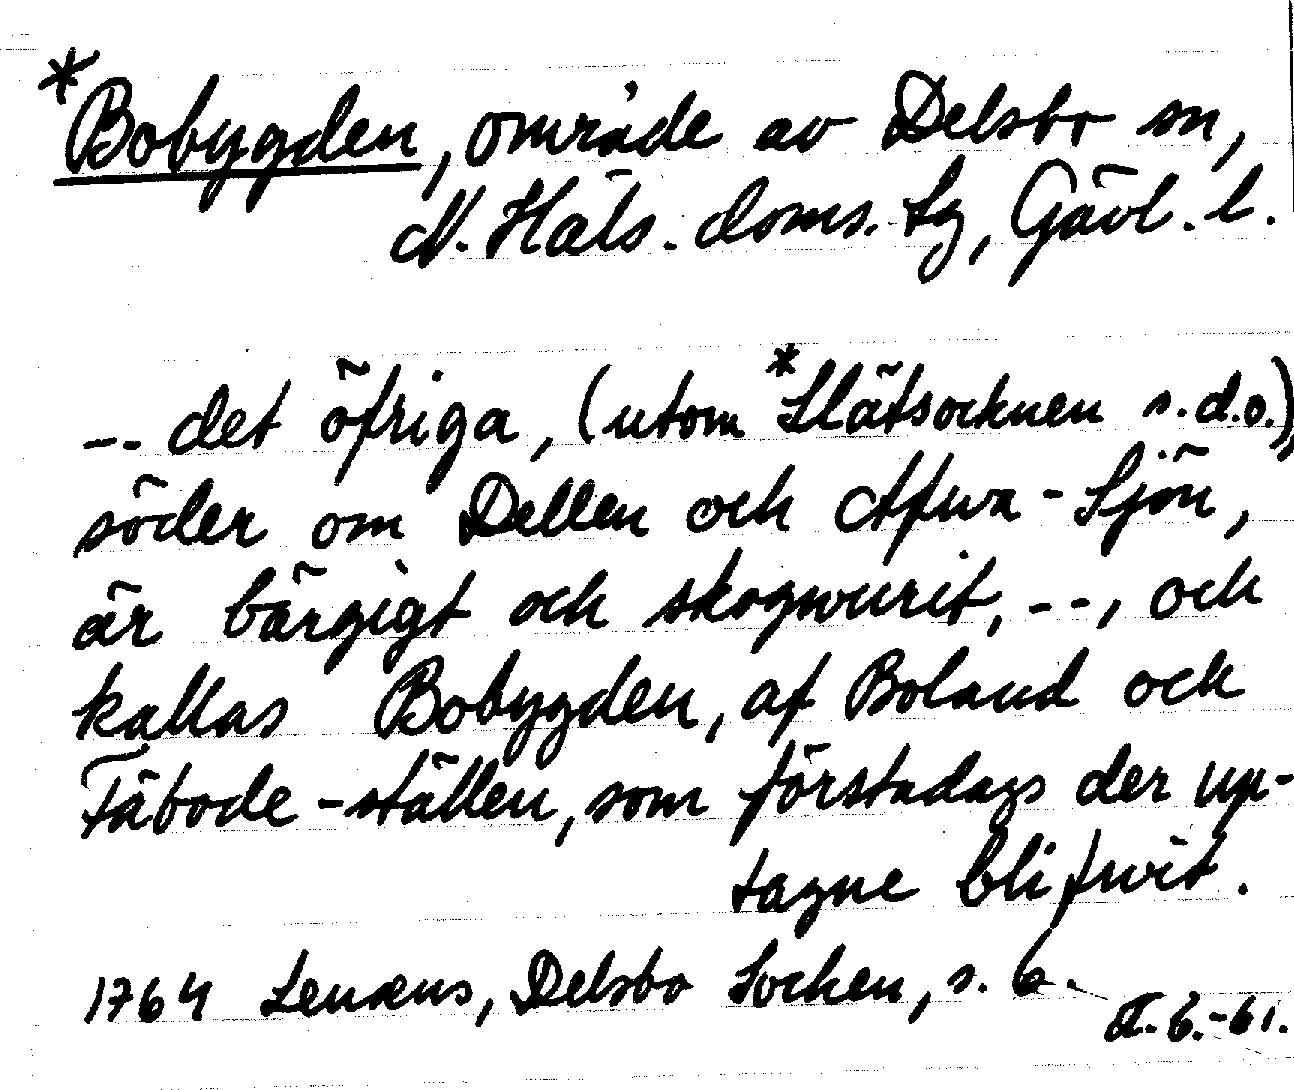 *Bobygden, område av Delsbo sn,
N. Häls. doms. tg, Gävl. l.
-- det öfriga, (utom *Slätsocknen s.d.o.),
söder om Dellen och Afwa-Sjön,
är bärgigt och skogwurit, --, och
kallas Bobygden, af Boland och
Fäbode-ställen, som förstadags der up-
tagne blifwit.
1764 Lenæus, Delsbo Socken, s. 6.
6.-61.